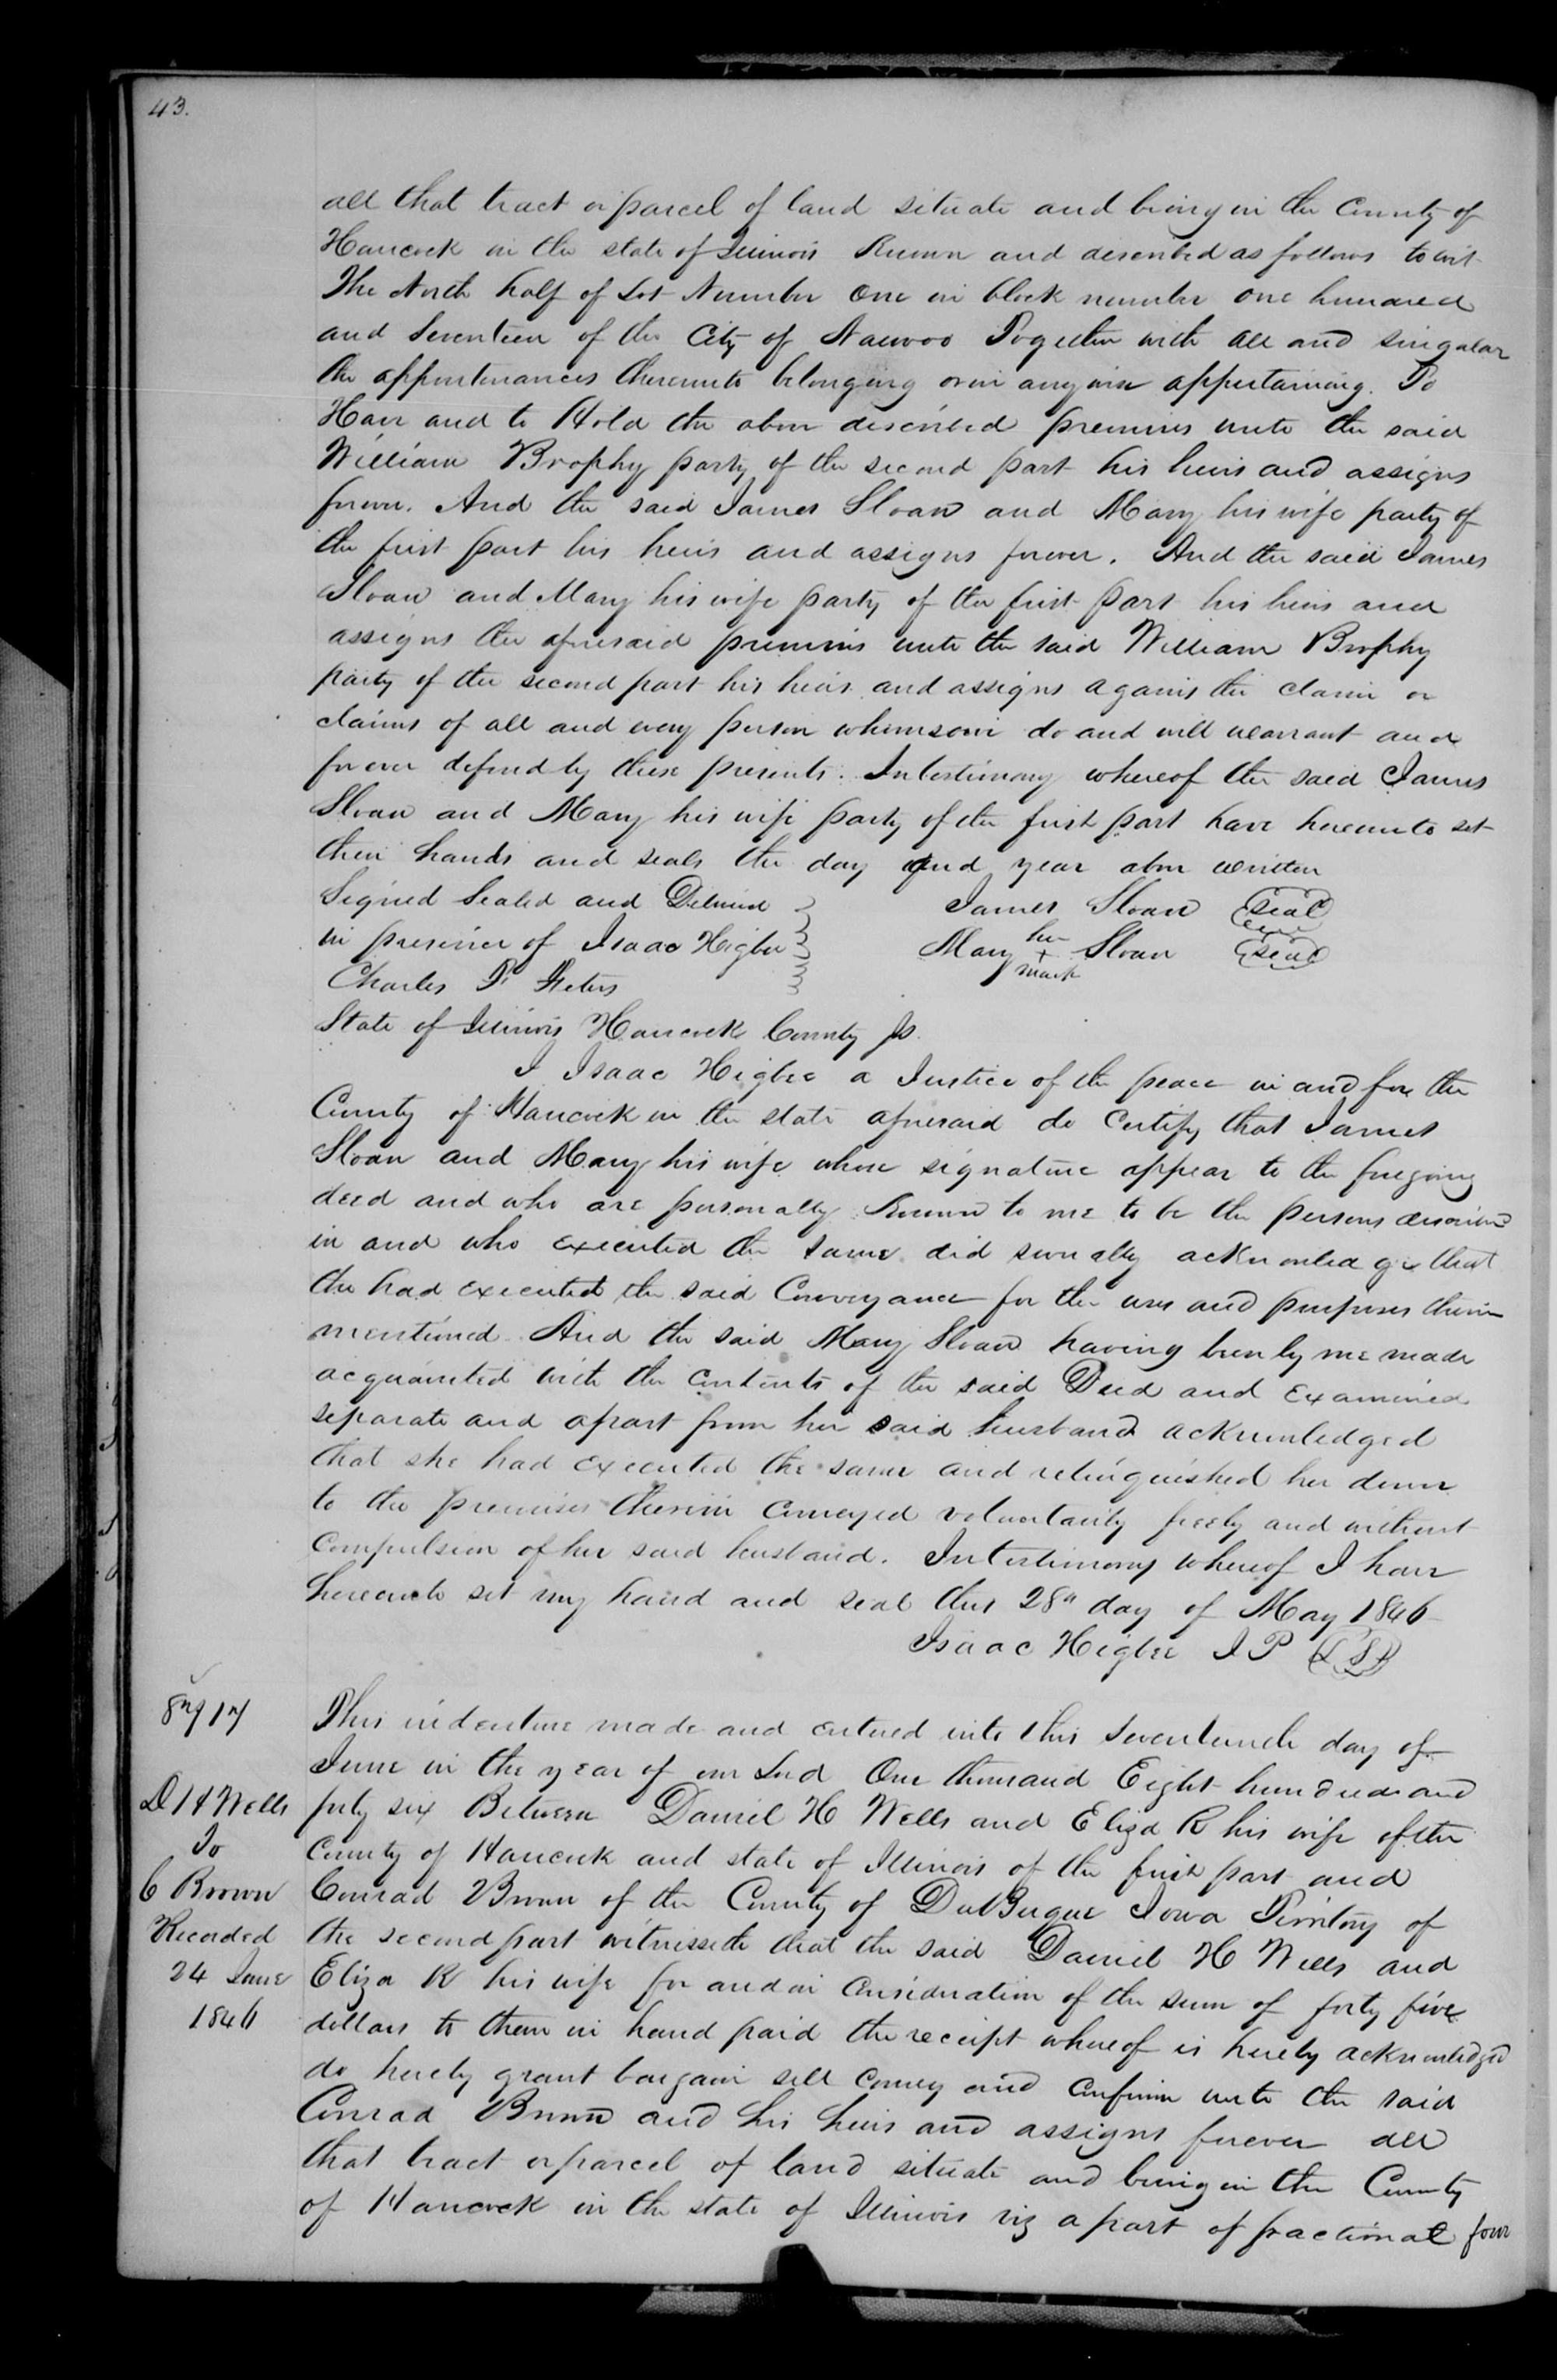 43.
all that tract or parcel of land situate and being in the County of
Hancock in the state of Illinois Known and described as follows to wit
The North half of Lot Number One in block number one hundred
and Seventeen of the City of Nauvoo Together with all and singular
the appurtenances thereunto belonging or in anywise appertaining. To
Have and to Hold the above described premises unto the said
William Brophy party of the second part his heirs and assigns
forever. And the said James Sloan and Mary his wife party of
the first part his heirs and assigns forever. And the said James
Sloan and Mary his wife party of the first part his heirs and
assigns the aforesaid premises unto the said William Brophy
party of the second part his heirs and assigns against the claim or
claims of all and every person whomsoever do and will warrant and
forever defend by these presents. In testimony whereof the said James
Sloan and Mary his wife party of the first part have hereunto set
their hands and seals the day and year above written
Signed Sealed and Delivered James Sloan Seal
in presence of Isaac Higbee Mary her + mark Sloan Seal
Charles P
State of Illinois Hancock County Ss.
I Isaac Higbee a Justice of the peace in and for the
County of Hancock in the state aforesaid do Certify that James
Sloan and Mary his wife whose signature appear to the foregoing
deed and who are personally Known to me to be the persons described
in and who executed the same did severally acknowledge that
the had executed the said Conveyance for the uses and purposes therein
mentioned And the said Mary Sloan having been by me made
acquainted with the contents of the said Deed and Examined
separate and apart from her said husband acknowledged
that she had executed the same and relinquished her dower
to the premises therein conveyed voluntarily freely and without
compulsion of her said husband. In testimony whereof I have
hereunto set my hand and seal this 28th day of May 1846
Isaac Higbee J P L S
D H Wells
To
C Brown
Recorded
24 June
1846
This indenture made and entered into this seventeenth day of
June in the year of our Lord One thousand Eight hundred and
forty six Between Daniel H Wells and Eliza R his wife of the
County of Hancock and state of Illinois of the first part and
Conrad Brown of the County of DuBuque Iowa Territory of
the second part witnesseth that the said Daniel H Wells and
Eliza R his wife for and in consideration of the sum of forty five
dollars to them in hand paid the receipt whereof is hereby acknowledged
do hereby grant bargain sell convey and confirm unto the said
Conrad Brown and his heirs and assigns forever all
that tract or parcel of land situate and being in the County
of Hancock in the state of Illinois viz a part of fractional four